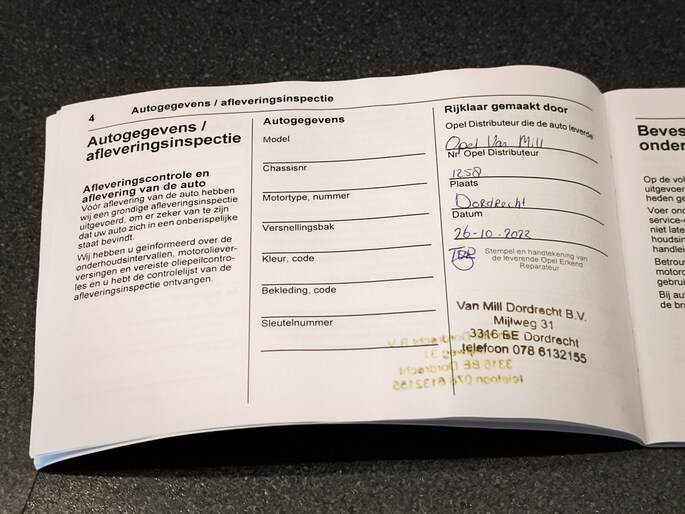 4
Autogegevens / afleveringsinspectie
Autogegevens /
afleveringsinspectie
Afleveringscontrole en
aflevering van de auto
Vóór aflevering van de auto hebben
wij een grondige afleveringsinspectie
uitgevoerd, om er zeker van te zijn
dat uw auto zich in een onberispelijke
staat bevindt.
Wij hebben u geïnformeerd over de
onderhoudsintervallen, motoroliever-
versingen en vereiste oliepeilcontro-
les en u hebt de controlelijst van de
afleveringsinspectie ontvangen.
Autogegevens
Model
Chassisnr.
Motortype, nummer
Versnellingsbak
Kleur, code
Bekleding, code
Sleutelnummer
Rijklaar gemaakt door
Opel Distributeur die de auto leverde
Opel Van Mill
Nr. Opel Distributeur
1258
Plaats
Dordrecht
Datum
26-10-2022
Stempel en handtekening van
de leverende Opel Erkend
Reparateur
Van Mill Dordrecht B.V.
Mijlweg 31
3316 BE Dordrecht
telefoon 078 6132155
Beves
onder
Op de vol
uitgevoer
heden ge
Voer ond
service-
niet late
houdsin
handlei
Betrou
motoro
gebrui
Bij au
de bra